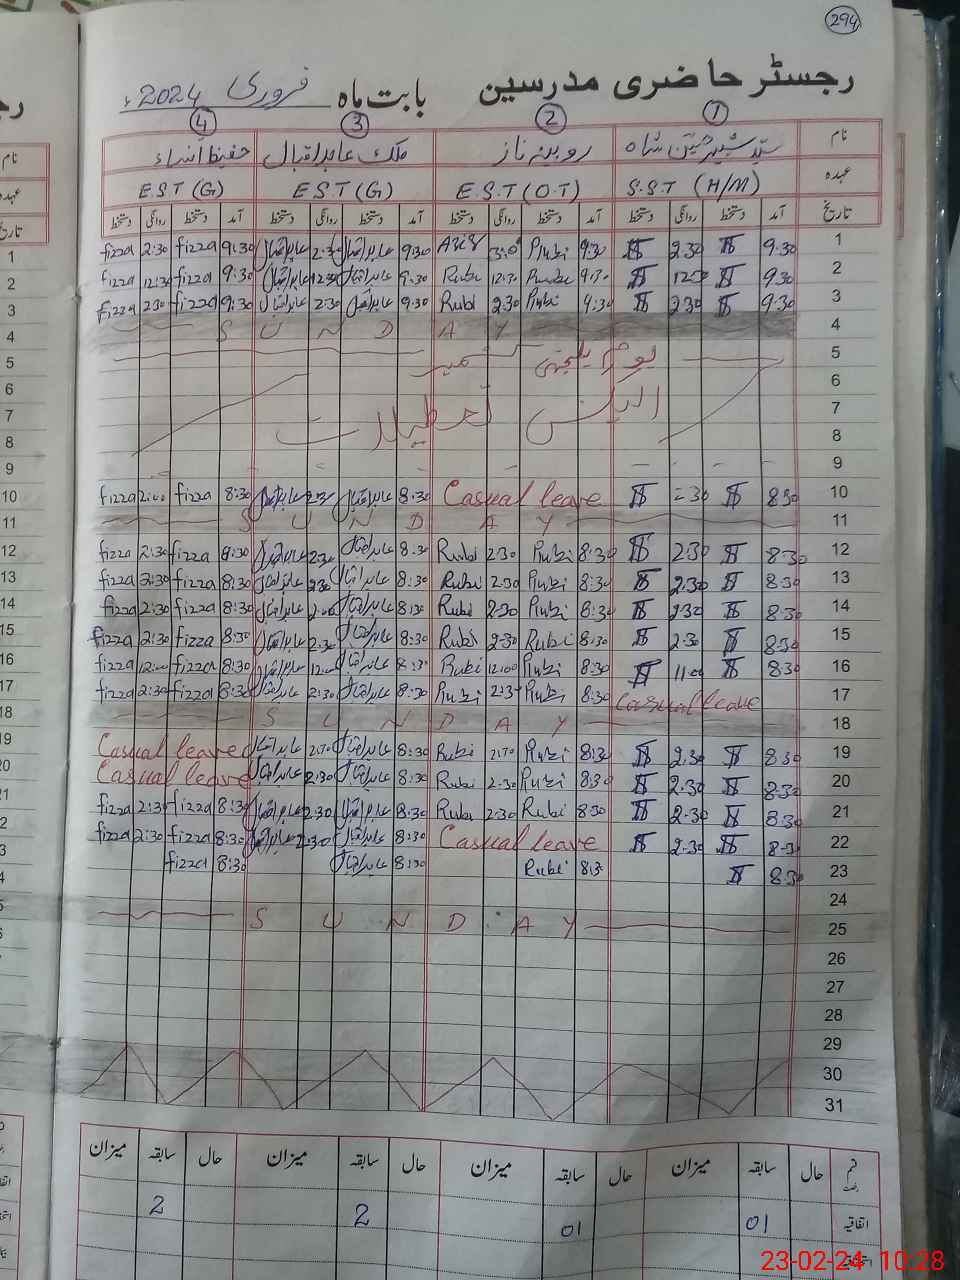 294
رجسٹر حاضری مدرسین بابت ماہ فروری 2024ء
1 2 3 4
نام سید شبیر حسین شاہ روبینہ ناز ملک عابد اقبال حفیظ النساء
عہدہ S.S.T (H/M) E.S.T (O.T) E.S.T (G) E.S.T (G)
تاریخ آمد دستخط روانگی دستخط آمد دستخط روانگی دستخط آمد دستخط روانگی دستخط آمد دستخط روانگی دستخط
1 9:30 2:30 9:30 Rubi 3:00 9:30 عابد اقبال 2:30 عابد اقبال 9:30 fizza 2:30 fizza
2 9:30 12:30 9:30 12:30 Rubi 9:30 عابد اقبال 12:30 عابد اقبال 9:30 fizza 12:30 fizza
3 9:30 2:30 9:30 Rubi 2:30 Rubi 9:30 عابد اقبال 2:30 عابد اقبال 9:30 fizza 2:30 fizza
4 SUNDAY
5 یوم یکجہتی کشمیر
6
7 الیکشن تعطیلات
8
9
10 8:30 2:30 Casual leave 8:30 عابد اقبال 2:30 عابد اقبال 8:30 fizza 2:00 fizza
11 SUNDAY
12 8:30 2:30 8:30 Rubi 2:30 Rubi 8:30 عابد اقبال 2:30 عابد اقبال 8:30 fizza 2:30 fizza
13 8:30 2:30 8:30 Rubi 2:30 Rubi 8:30 عابد اقبال 2:30 عابد اقبال 8:30 fizza 2:30 fizza
14 8:30 2:30 8:30 Rubi 2:30 Rubi 8:30 عابد اقبال عابد اقبال 8:30 fizza 2:30 fizza
15 8:30 2:30 8:30 Rubi 2:30 Rubi 8:30 عابد اقبال 2:30 عابد اقبال 8:30 fizza 2:30 fizza
16 8:30 11:00 8:30 Rubi 12:00 Rubi 8:30 عابد اقبال 12:00 عابد اقبال 8:30 fizza 12:00 fizza
17 Casual leave 8:30 Rubi 2:30 Rubi 8:30 عابد اقبال 2:30 عابد اقبال 8:30 fizza 2:30 fizza
18 SUNDAY
19 8:30 2:30 8:30 Rubi 2:30 Rubi 8:30 عابد اقبال 2:30 عابد اقبال Casual leave
20 8:30 2:30 8:30 Rubi 2:30 Rubi 8:30 عابد اقبال 2:30 عابد اقبال Casual leave
21 8:30 2:30 8:30 Rubi 2:30 Rubi 8:30 عابد اقبال 2:30 عابد اقبال 8:30 fizza 2:30 fizza
22 8:30 2:30 Casual leave 8:30 عابد اقبال 2:30 عابد اقبال 8:30 fizza 2:30 fizza
23 8:30 8:30 Rubi 8:30 عابد اقبال 8:30 fizza
24
25 SUNDAY
26
27
28
29
30
31
حال سابقہ میزان حال سابقہ میزان حال سابقہ میزان حال سابقہ میزان
اتفاقیہ 01 01 2 2
23-02-24 10:28